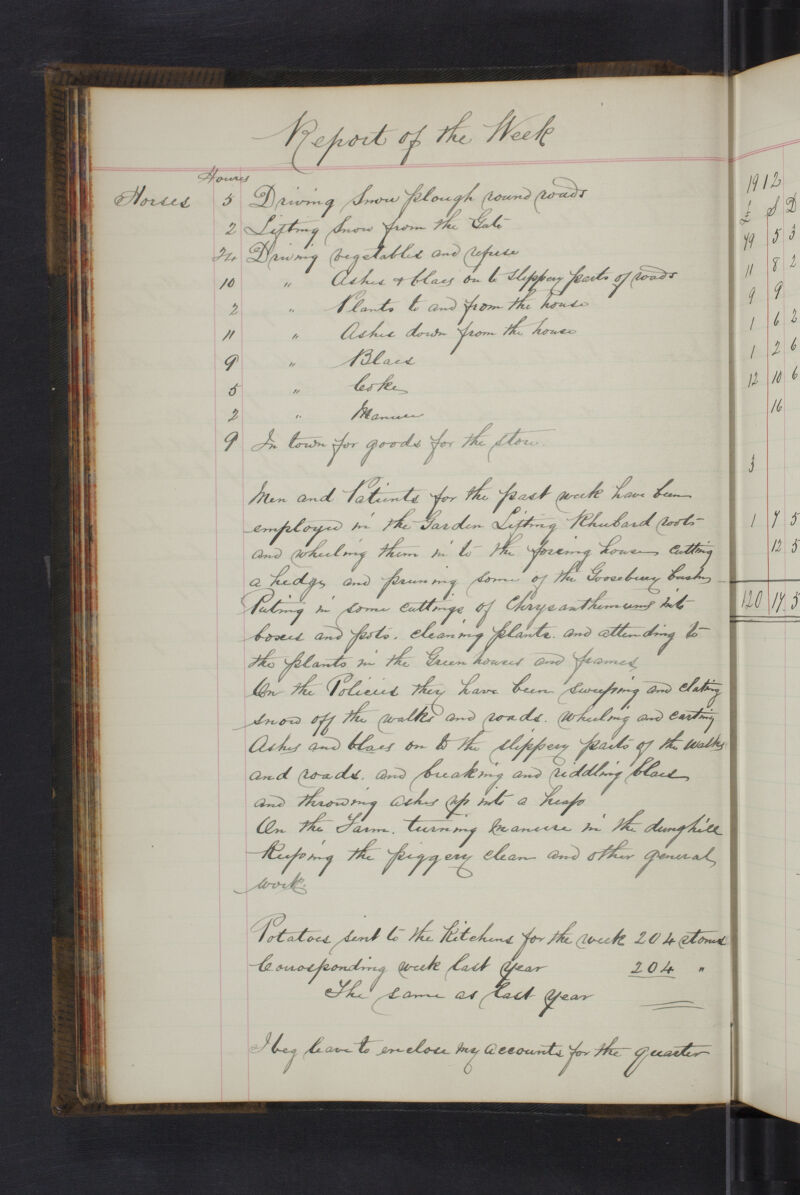 Report of the Week
Hours
Horses 5 Driving Snow plough round roads
2 Lifting Snow from the Gate
24 Driving vegetables and refuse
10 " Ashes & blaes on to slippery parts of roads
2 " Plants to and from the house
11 " Ashes down from the house
9 " Blaes
5 " Coke
2 " Manure
9 In town for goods for the store.
Men and Patients for the past week have been
employed in the Garden Lifting Rhubard roots
and wheeling them in to the forcing house, cutting
a hedge and pruning some of the Gooseberry bushes
Puting in some cuttings of Chrysanthemums into
boxes and pots. cleaning plants. and attending to
the plants in the Green houses and frames
On the Policies they have been sweeping and
snow off the walks and roads. wheeling and carting
Ashes and blaes on to the slippery parts of the walks
and roads. and breaking and riddling blaes
and throwing ashes up into a heap
On the Farm. turning manure in the dunghill
Keeping the piggery clean and other general
work.
Potatoes sent to the Kitchens for the week 204 stones
Corrosponding week last year 204 "
The same as last year
I beg leave to enclose my accounts for the quarter
1912
£ S D
49 5 3
11 8 2
9 9
1 6 2
1 2 6
12 10 6
16
3
1 7 5
12 5
120 17 5